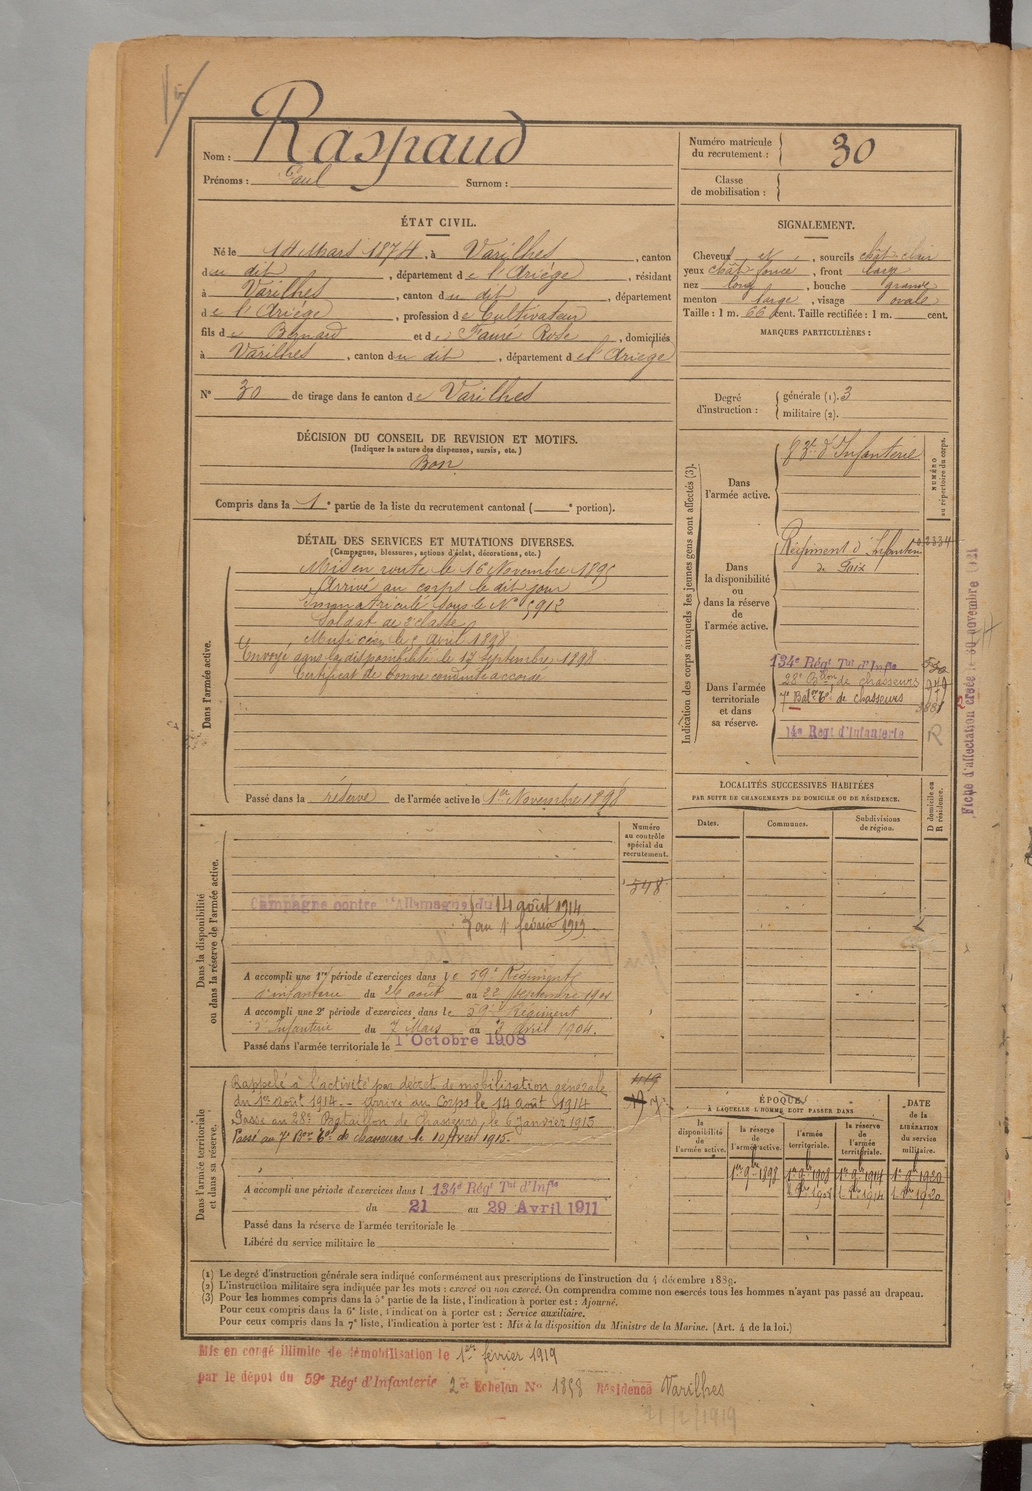 Nom : Raspaud
Prénoms : Paul Surnom :
Numéro matricule du recrutement : 30
Classe de mobilisation :
ÉTAT CIVIL.
Né le 14 Mars 1874, à Varilhes, canton
du dit, département de l'Ariège, résidant
à Varilhes, canton du dit, département
de l'Ariège, profession de Cultivateur
fils de Bernard et de Faure Rose, domiciliés
à Varilhes, canton du dit, département de l'Ariège
N° 30 de tirage dans le canton de Varilhes
SIGNALEMENT.
Cheveux et, sourcils chât clair
yeux chât foncé, front large
nez long, bouche grande
menton large, visage ovale
Taille : 1 m. 66 cent. Taille rectifiée : 1 m. cent.
MARQUES PARTICULIÈRES :
Degré d'instruction : générale (1). 3
militaire (2).
DÉCISION DU CONSEIL DE REVISION ET MOTIFS.
(Indiquer la nature des dispenses, sursis, etc.)
Bon
Compris dans la 1e partie de la liste du recrutement cantonal ( e portion).
DÉTAIL DES SERVICES ET MUTATIONS DIVERSES.
(Campagnes, blessures, actions d'éclat, décorations, etc.)
Dans l'armée active.
Mis en route le 16 Novembre 1895
Arrivé au corps le dit jour
Immatriculé sous le N° 5912
Soldat de 2e classe
Avril 1898
Envoyé dans la disponibilité le 17 Septembre 1898
Certificat de bonne conduite accordé
Passé dans la réserve de l'armée active le 1er Novembre 1898
Indication des corps auxquels les jeunes gens sont affectés (3).
NUMÉRO au répertoire du corps.
Dans l'armée active.
d'Infanterie
Dans la disponibilité ou dans la réserve de l'armée active.
Régiment d'Infanterie
de Foix
Dans l'armée territoriale et dans sa réserve.
134e Régt Tal d'Infie
28e Bton de chasseurs
7e Bat. T. de chasseurs
14e Régt d'Infanterie
R
LOCALITÉS SUCCESSIVES HABITÉES
PAR SUITE DE CHANGEMENTS DE DOMICILE OU DE RÉSIDENCE.
Dates. Communes. Subdivisions de région. D domicile ou R résidence.
Numéro au contrôle spécial du recrutement.
548
Dans la disponibilité ou dans la réserve de l'armée active.
Campagne contre l'Allemagne du 14 août 1914
au 1 février 1919.
A accompli une 1re période d'exercices dans le 59e Régiment
d'infanterie du 26 août au 22 septembre 1901
A accompli une 2e période d'exercices dans le 59e Régiment
d'Infanterie du 7 Mars au 3 Avril 1904.
Passé dans l'armée territoriale le 1 Octobre 1908
Dans l'armée territoriale et dans sa réserve.
Rappelé à l'activité par décret de mobilisation générale
du 1er Août 1914. - Arrivé au Corps le 14 août 1914
Passé au 28e Bataillon de Chasseurs, le 6 Janvier 1915
Passé au 7e Bon Tal de chasseurs le 10 Avril 1915.
A accompli une période d'exercices dans l 134e Régt Tal d'Infie
du 21 au 29 Avril 1911
Passé dans la réserve de l'armée territoriale le
Libéré du service militaire le
ÉPOQUES
À LAQUELLE L'HOMME DOIT PASSER DANS
la disponibilité de l'armée active. la réserve de l'armée active. l'armée territoriale. la réserve de l'armée territoriale.
DATE de la LIBÉRATION du service militaire.
1er 9bre 1898 1er 9bre 1908 1er 9bre 1914 1er 9bre 1920
(1) Le degré d'instruction générale sera indiqué conformément aux prescriptions de l'instruction du 4 décembre 1889.
(2) L'instruction militaire sera indiquée par les mots : exercé ou non exercé. On comprendra comme non exercés tous les hommes n'ayant pas passé au drapeau.
(3) Pour les hommes compris dans la 5e partie de la liste, l'indication à porter est : Ajourné.
Pour ceux compris dans la 6e liste, l'indication à porter est : Service auxiliaire.
Pour ceux compris dans la 7e liste, l'indication à porter est : Mis à la disposition du Ministre de la Marine. (Art. 4 de la loi.)
Mis en congé illimité de démobilisation le 1er février 1919
par le dépôt du 59e Régt d'Infanterie 2e Echelon N° 1898 Résidence Varilhes
21/2/1919